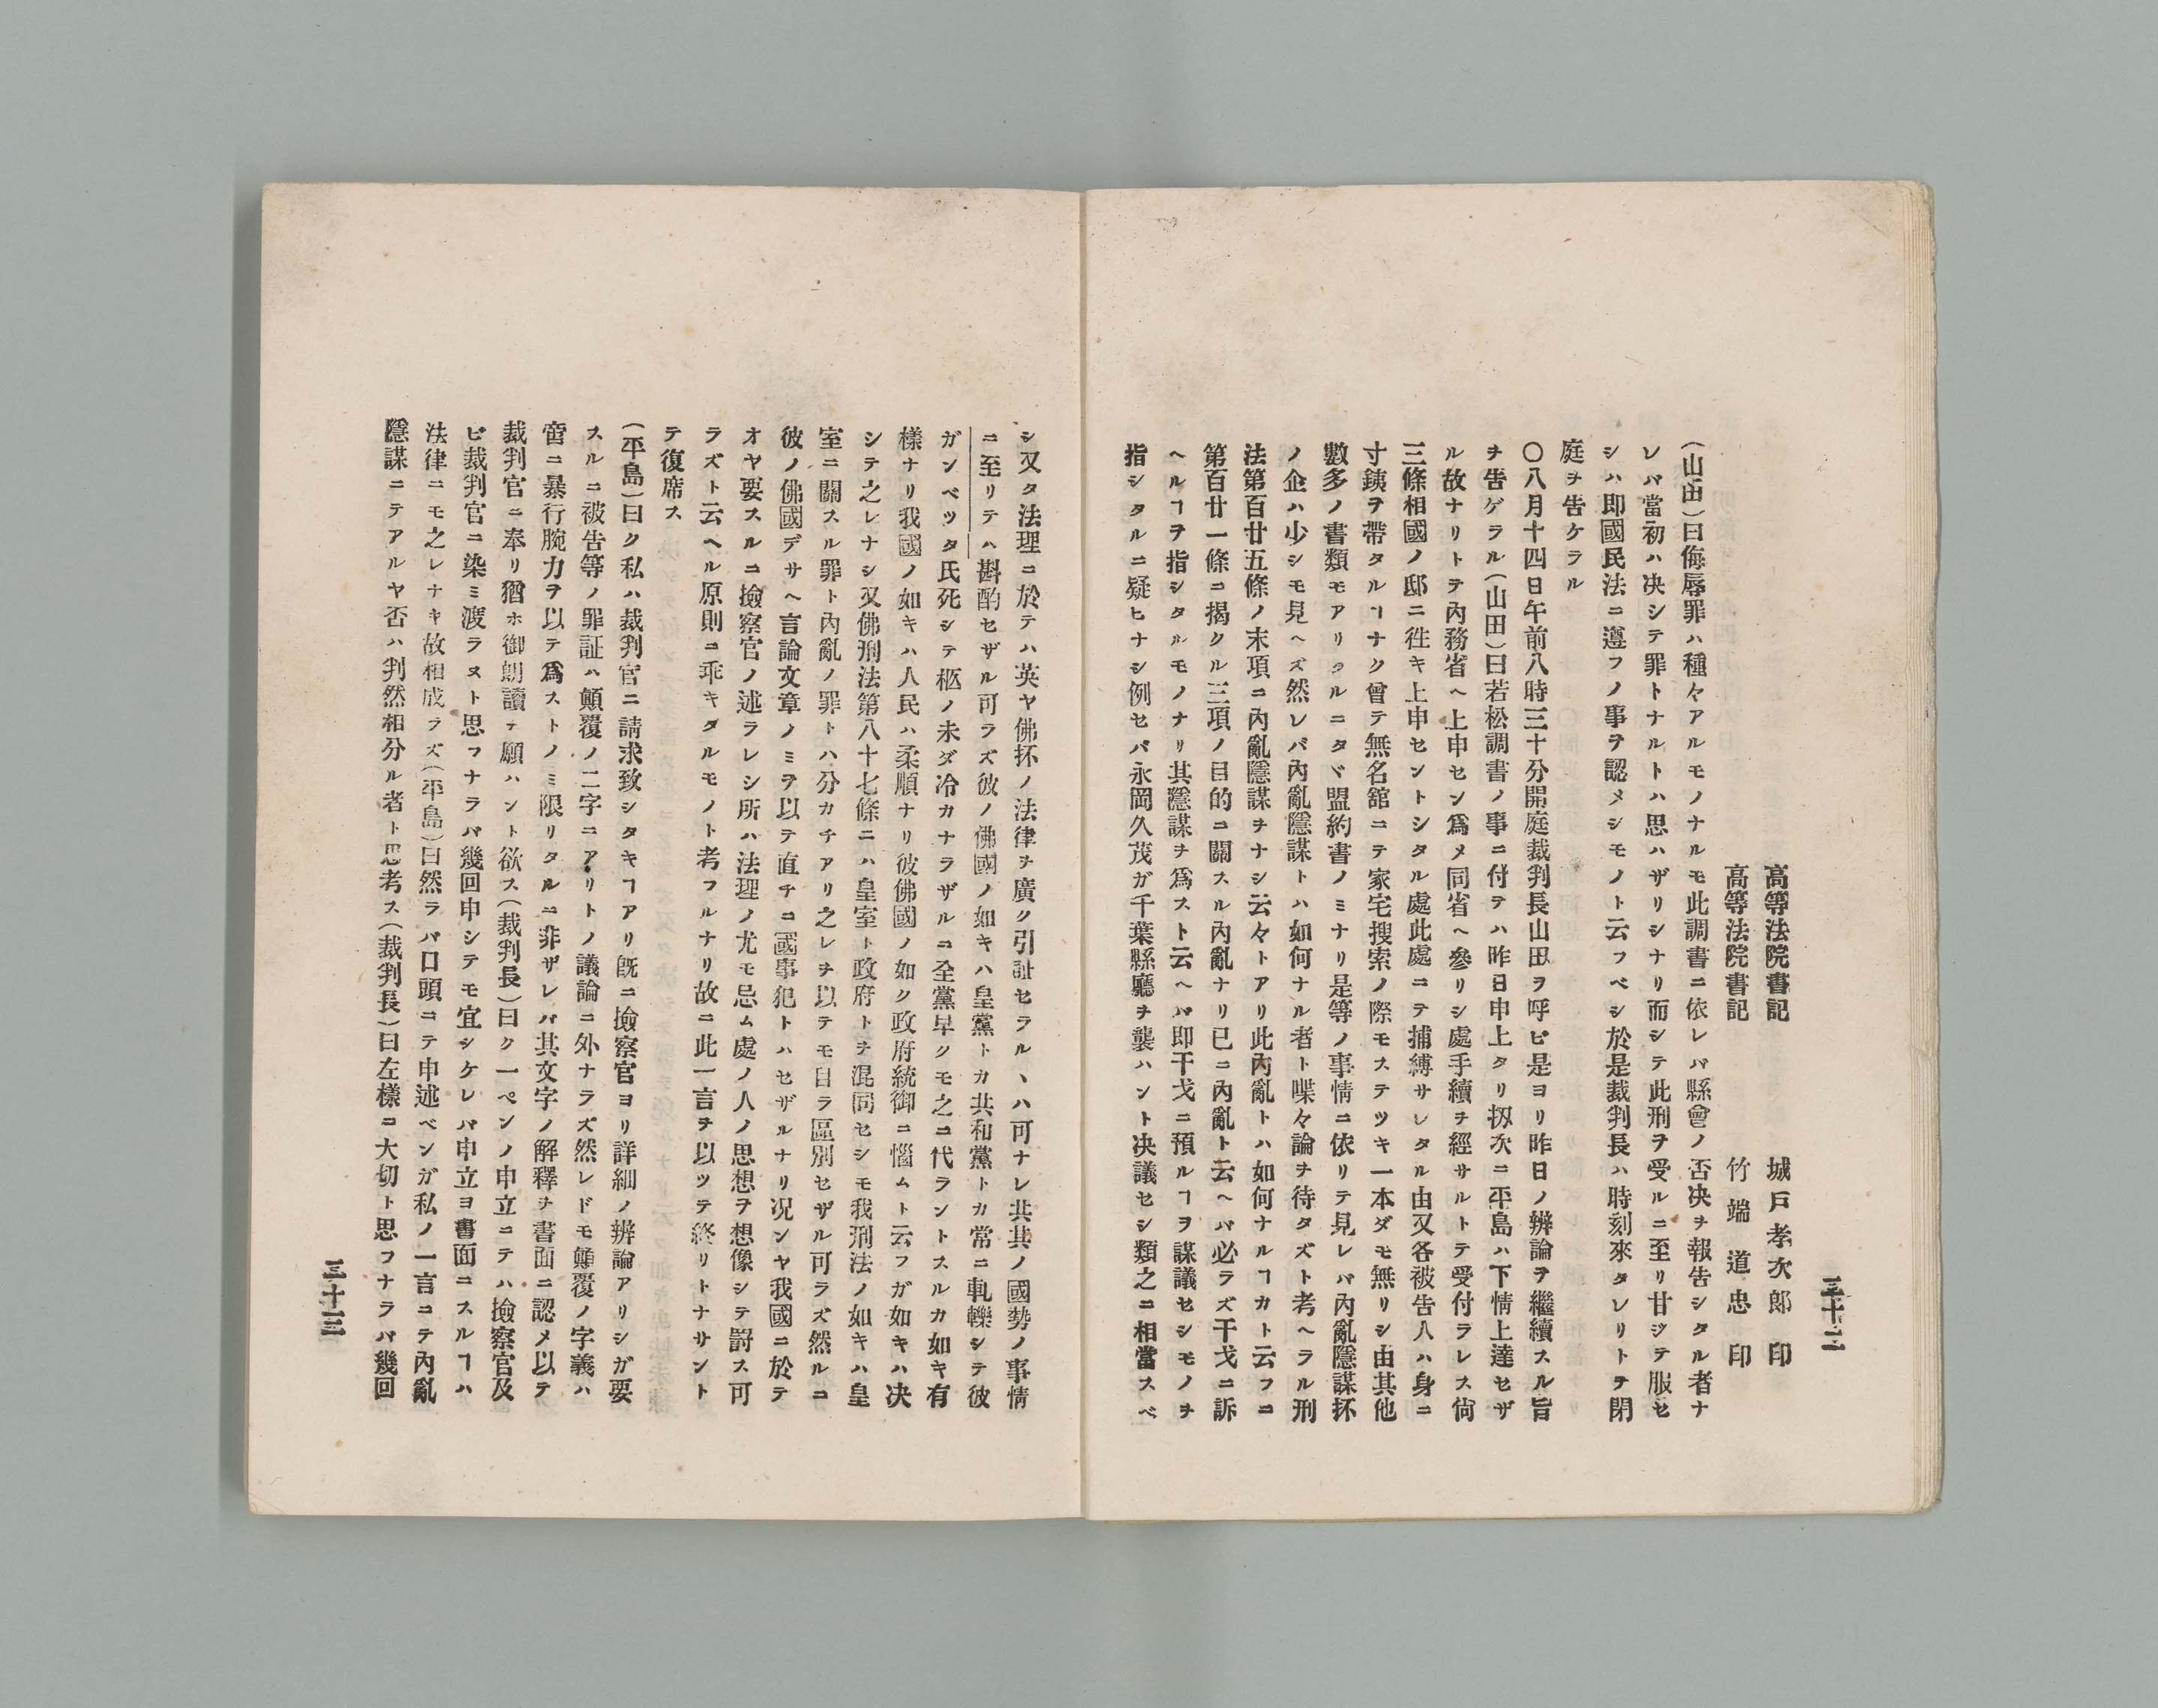 高等法院書記　城戸孝次郎　印
高等法院書記　竹端道忠　印
(山田)曰侮辱罪ハ種々アルモノナルモ此調書ニ依レバ縣會ノ否决ヲ報告シタル者ナ
レバ當初ハ决シテ罪トナルトハ思ハザリシナリ而シテ此刑ヲ受ルニ至リ甘ジテ服セ
シハ即國民法ニ遵フノ事ヲ認メシモノト云フベシ於是裁判長ハ時刻來タレリトヲ閉
庭ヲ告ケラル
〇八月十四日午前八時三十分開庭裁判長山田ヲ呼ビ是ヨリ昨日ノ辨論ヲ繼續スル旨
ヲ告ゲラル(山田)曰若松調書ノ事ニ付テハ昨日申上タリ扨次ニ平島ハ下情上達セザ
ル故ナリトテ內務省ヘ上申セン爲メ同省ヘ參リシ處手續ヲ經サルトテ受付ラレス尙
三條相國ノ邸ニ徃キ上申セントシタル處此處ニテ捕縛サレタル由又各被告人ハ身ニ
寸銕ヲ帶タルヿナク曾テ無名舘ニテ家宅搜索ノ際モステツキ一本ダモ無リシ由其他
數多ノ書類モアリツルニタヾ盟約書ノミナリ是等ノ事情ニ依リテ見レバ內亂隱謀抔
ノ企ハ少シモ見ヘズ然レバ內亂隱謀トハ如何ナル者ト喋々論ヲ待タズト考ヘラル刑
法第百廿五條ノ末項ニ內亂隱謀ヲナシ云々トアリ此內亂トハ如何ナルヿカト云フニ
第百廿一條ニ揭クル三項ノ目的ニ關スル內亂ナリ已ニ內亂ト云ヘバ必ラズ干戈ニ訴
ヘルヿヲ指シタルモノナリ其隱謀ヲ爲スト云ヘバ即干戈ニ預ルヿヲ謀議セシモノヲ
指シタルニ疑ヒナシ例セバ永岡久茂ガ千葉縣廳ヲ襲ハント决議セシ類之ニ相當スベ
三十二
シ又タ法理ニ於テハ英ヤ佛抔ノ法律ヲ廣ク引証セラルヽハ可ナレ共其ノ國勢ノ事情
ニ至リテハ斟酌セザル可ラズ彼ノ佛國ノ如キハ皇黨トカ共和黨トカ常ニ軋轢シテ彼
ガンベツタ氏死シテ柩ノ未ダ冷カナラザルニ全黨早クモ之ニ代ラントスルカ如キ有
樣ナリ我國ノ如キハ人民ハ柔順ナリ彼佛國ノ如ク政府統御ニ惱ムト云フガ如キハ决
シテ之レナシ又佛刑法第八十七條ニハ皇室ト政府トヲ混同セシモ我刑法ノ如キハ皇
室ニ關スル罪ト內亂ノ罪トハ分カチアリ之レヲ以テモ自ラ區別セザル可ラズ然ルニ
彼ノ佛國デサヘ言論文章ノミヲ以テ直チニ國事犯トハセザルナリ况ンヤ我國ニ於テ
オヤ要スルニ撿察官ノ述ラレシ所ハ法理ノ尤モ忌ム處ノ人ノ思想ヲ想像シテ罸ス可
ラズト云ヘル原則ニ乖キタルモノト考フルナリ故ニ此一言ヲ以ツテ終リトナサント
テ復席ス
(平島)曰ク私ハ裁判官ニ請求致シタキヿアリ既ニ撿察官ヨリ詳細ノ辨論アリシガ要
スルニ被告等ノ罪証ハ顛覆ノ二字ニアリトノ議論ニ外ナラズ然レドモ顛覆ノ字義ハ
啻ニ暴行腕力ヲ以テ爲ストノミ限リタルニ非ザレバ其文字ノ解釋ヲ書面ニ認メ以テ
裁判官ニ奉リ猶ホ御朗讀ヲ願ハント欲ス(裁判長)曰ク一ペンノ申立ニテハ撿察官及
ビ裁判官ニ染ミ渡ラヌト思フナラバ幾回申シテモ宜シケレバ申立ヨ書面ニスルヿハ
法律ニモ之レナキ故相成ラズ(平島)曰然ラバ口頭ニテ申述ベンガ私ノ一言ニテ內亂
隱謀ニテアルヤ否ハ判然相分ル者ト思考ス(裁判長)曰左樣ニ大切ト思フナラバ幾回
三十三